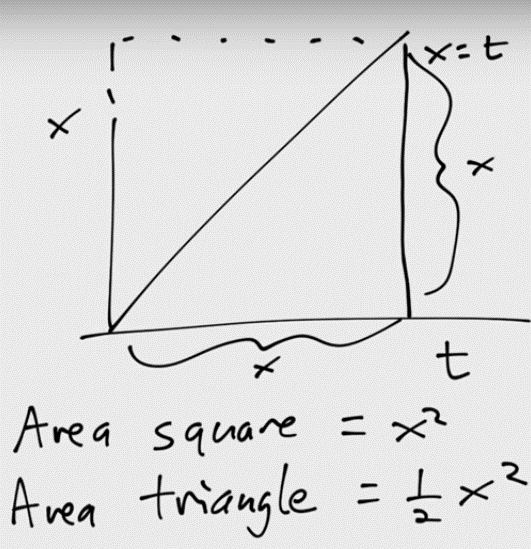 x = t
x
x
x
t
Area square = x²
Area triangle = ½ x²